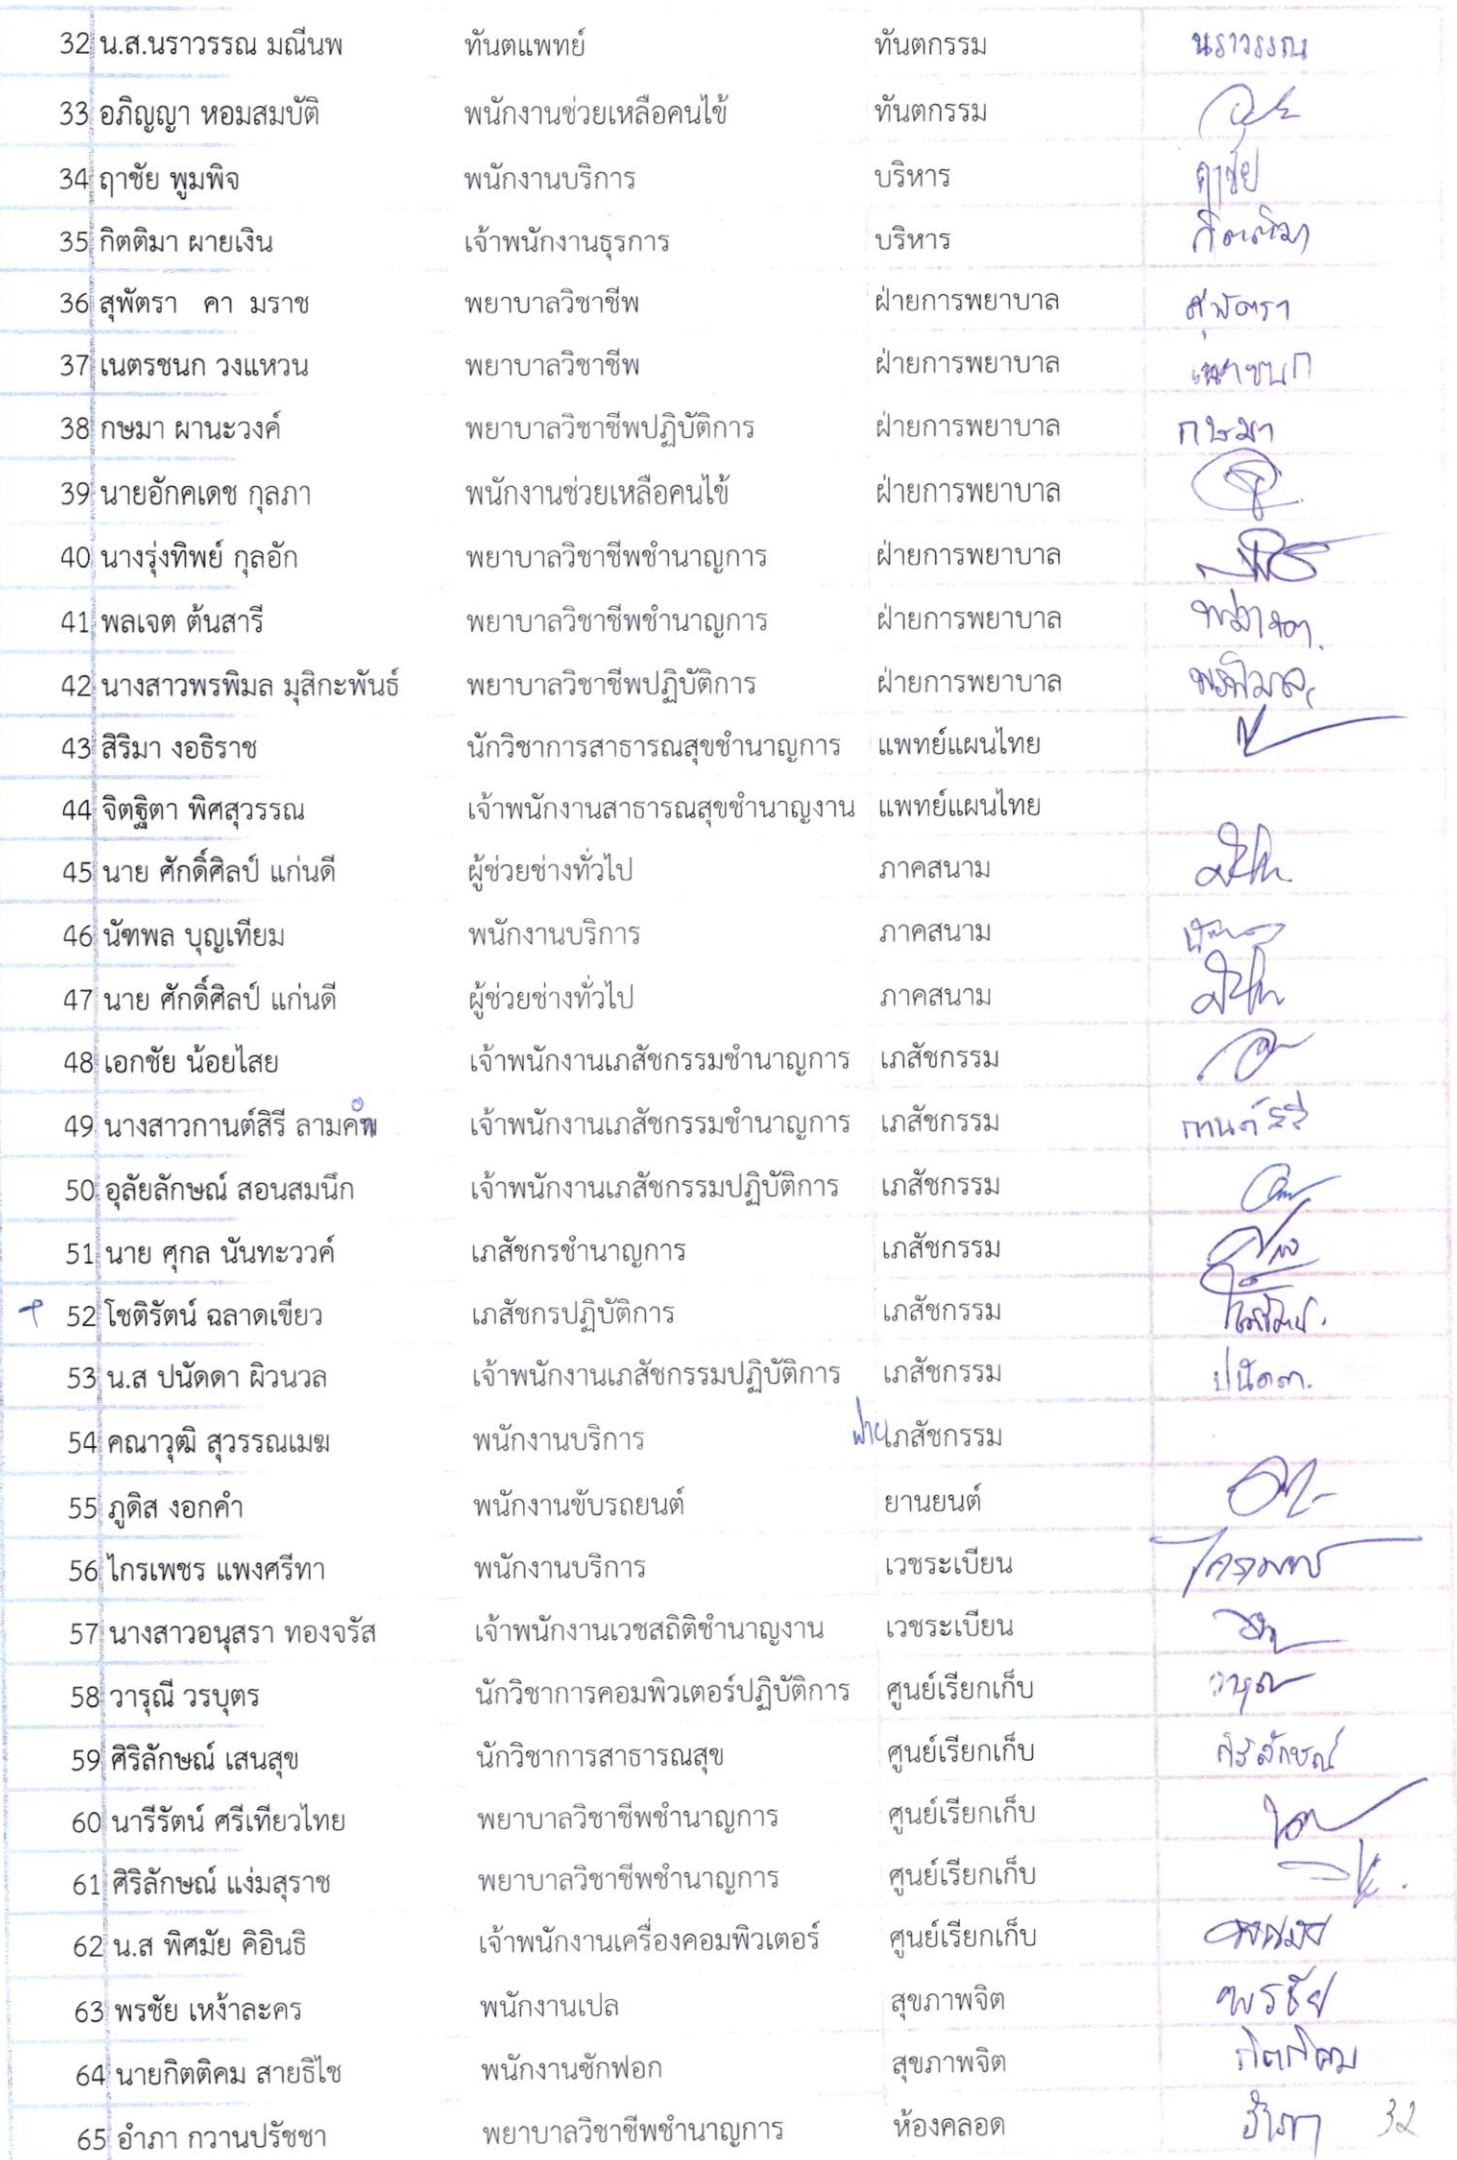 32 น.ส.นราวรรณ มณีนพ ทันตแพทย์ ทันตกรรม นราวรรณ
33 อภิญญา หอมสมบัติ พนักงานช่วยเหลือคนไข้ ทันตกรรม
34 ฤาชัย พูมพิจ พนักงานบริการ บริหาร ฤาชัย
35 กิตติมา ผายเงิน เจ้าพนักงานธุรการ บริหาร กิตติมา
36 สุพัตรา คา มราช พยาบาลวิชาชีพ ฝ่ายการพยาบาล สุพัตรา
37 เนตรชนก วงแหวน พยาบาลวิชาชีพ ฝ่ายการพยาบาล
38 กษมา ผานะวงค์ พยาบาลวิชาชีพปฏิบัติการ ฝ่ายการพยาบาล กษมา
39 นายอักคเดช กุลภา พนักงานช่วยเหลือคนไข้ ฝ่ายการพยาบาล
40 นางรุ่งทิพย์ กุลอัก พยาบาลวิชาชีพชำนาญการ ฝ่ายการพยาบาล
41 พลเจต ต้นสารี พยาบาลวิชาชีพชำนาญการ ฝ่ายการพยาบาล
42 นางสาวพรพิมล มุสิกะพันธ์ พยาบาลวิชาชีพปฏิบัติการ ฝ่ายการพยาบาล พรพิมล
43 สิริมา งอธิราช นักวิชาการสาธารณสุขชำนาญการ แพทย์แผนไทย
44 จิตฐิตา พิศสุวรรณ เจ้าพนักงานสาธารณสุขชำนาญงาน แพทย์แผนไทย
45 นาย ศักดิ์ศิลป์ แก่นดี ผู้ช่วยช่างทั่วไป ภาคสนาม
46 นัฑพล บุญเทียม พนักงานบริการ ภาคสนาม
47 นาย ศักดิ์ศิลป์ แก่นดี ผู้ช่วยช่างทั่วไป ภาคสนาม
48 เอกชัย น้อยไสย เจ้าพนักงานเภสัชกรรมชำนาญการ เภสัชกรรม
49 นางสาวกานต์สิรี เจ้าพนักงานเภสัชกรรมชำนาญการ เภสัชกรรม กานต์สิรี
50 อุลัยลักษณ์ สอนสมนึก เจ้าพนักงานเภสัชกรรมปฏิบัติการ เภสัชกรรม
51 นาย ศุกล นันทะววค์ เภสัชกรชำนาญการ เภสัชกรรม
52 โชติรัตน์ ฉลาดเขียว เภสัชกรปฏิบัติการ เภสัชกรรม
53 น.ส ปนัดดา ผิวนวล เจ้าพนักงานเภสัชกรรมปฏิบัติการ เภสัชกรรม ปนัดดา
54 คณาวุฒิ สุวรรณเมฆ พนักงานบริการ ฝ่ายเภสัชกรรม
55 ภูดิส งอกคำ พนักงานขับรถยนต์ ยานยนต์
56 ไกรเพชร แพงศรีทา พนักงานบริการ เวชระเบียน
57 นางสาวอนุสรา ทองจรัส เจ้าพนักงานเวชสถิติชำนาญงาน เวชระเบียน
58 วารุณี วรบุตร นักวิชาการคอมพิวเตอร์ปฏิบัติการ ศูนย์เรียกเก็บ
59 ศิริลักษณ์ เสนสุข นักวิชาการสาธารณสุข ศูนย์เรียกเก็บ ศิริลักษณ์
60 นารีรัตน์ ศรีเทียวไทย พยาบาลวิชาชีพชำนาญการ ศูนย์เรียกเก็บ
61 ศิริลักษณ์ แง่มสุราช พยาบาลวิชาชีพชำนาญการ ศูนย์เรียกเก็บ
62 น.ส พิศมัย คิอินธิ เจ้าพนักงานเครื่องคอมพิวเตอร์ ศูนย์เรียกเก็บ พิศมัย
63 พรชัย เหง้าละคร พนักงานเปล สุขภาพจิต พรชัย
64 นายกิตติคม สายธิไช พนักงานซักฟอก สุขภาพจิต กิตติคม
65 อำภา กวานปรัชชา พยาบาลวิชาชีพชำนาญการ ห้องคลอด อำภา 32